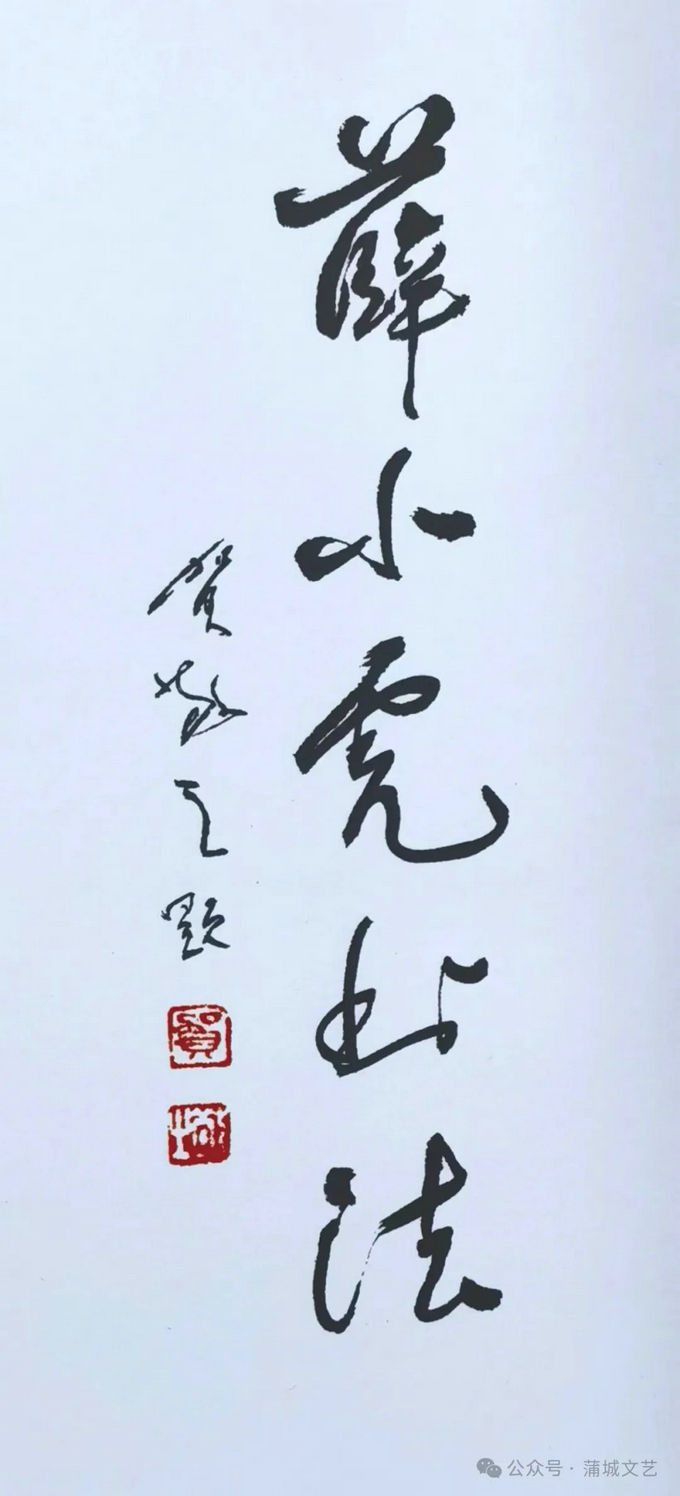 薛小虎书法
贺敬之题
贺
公众号·蒲城文艺